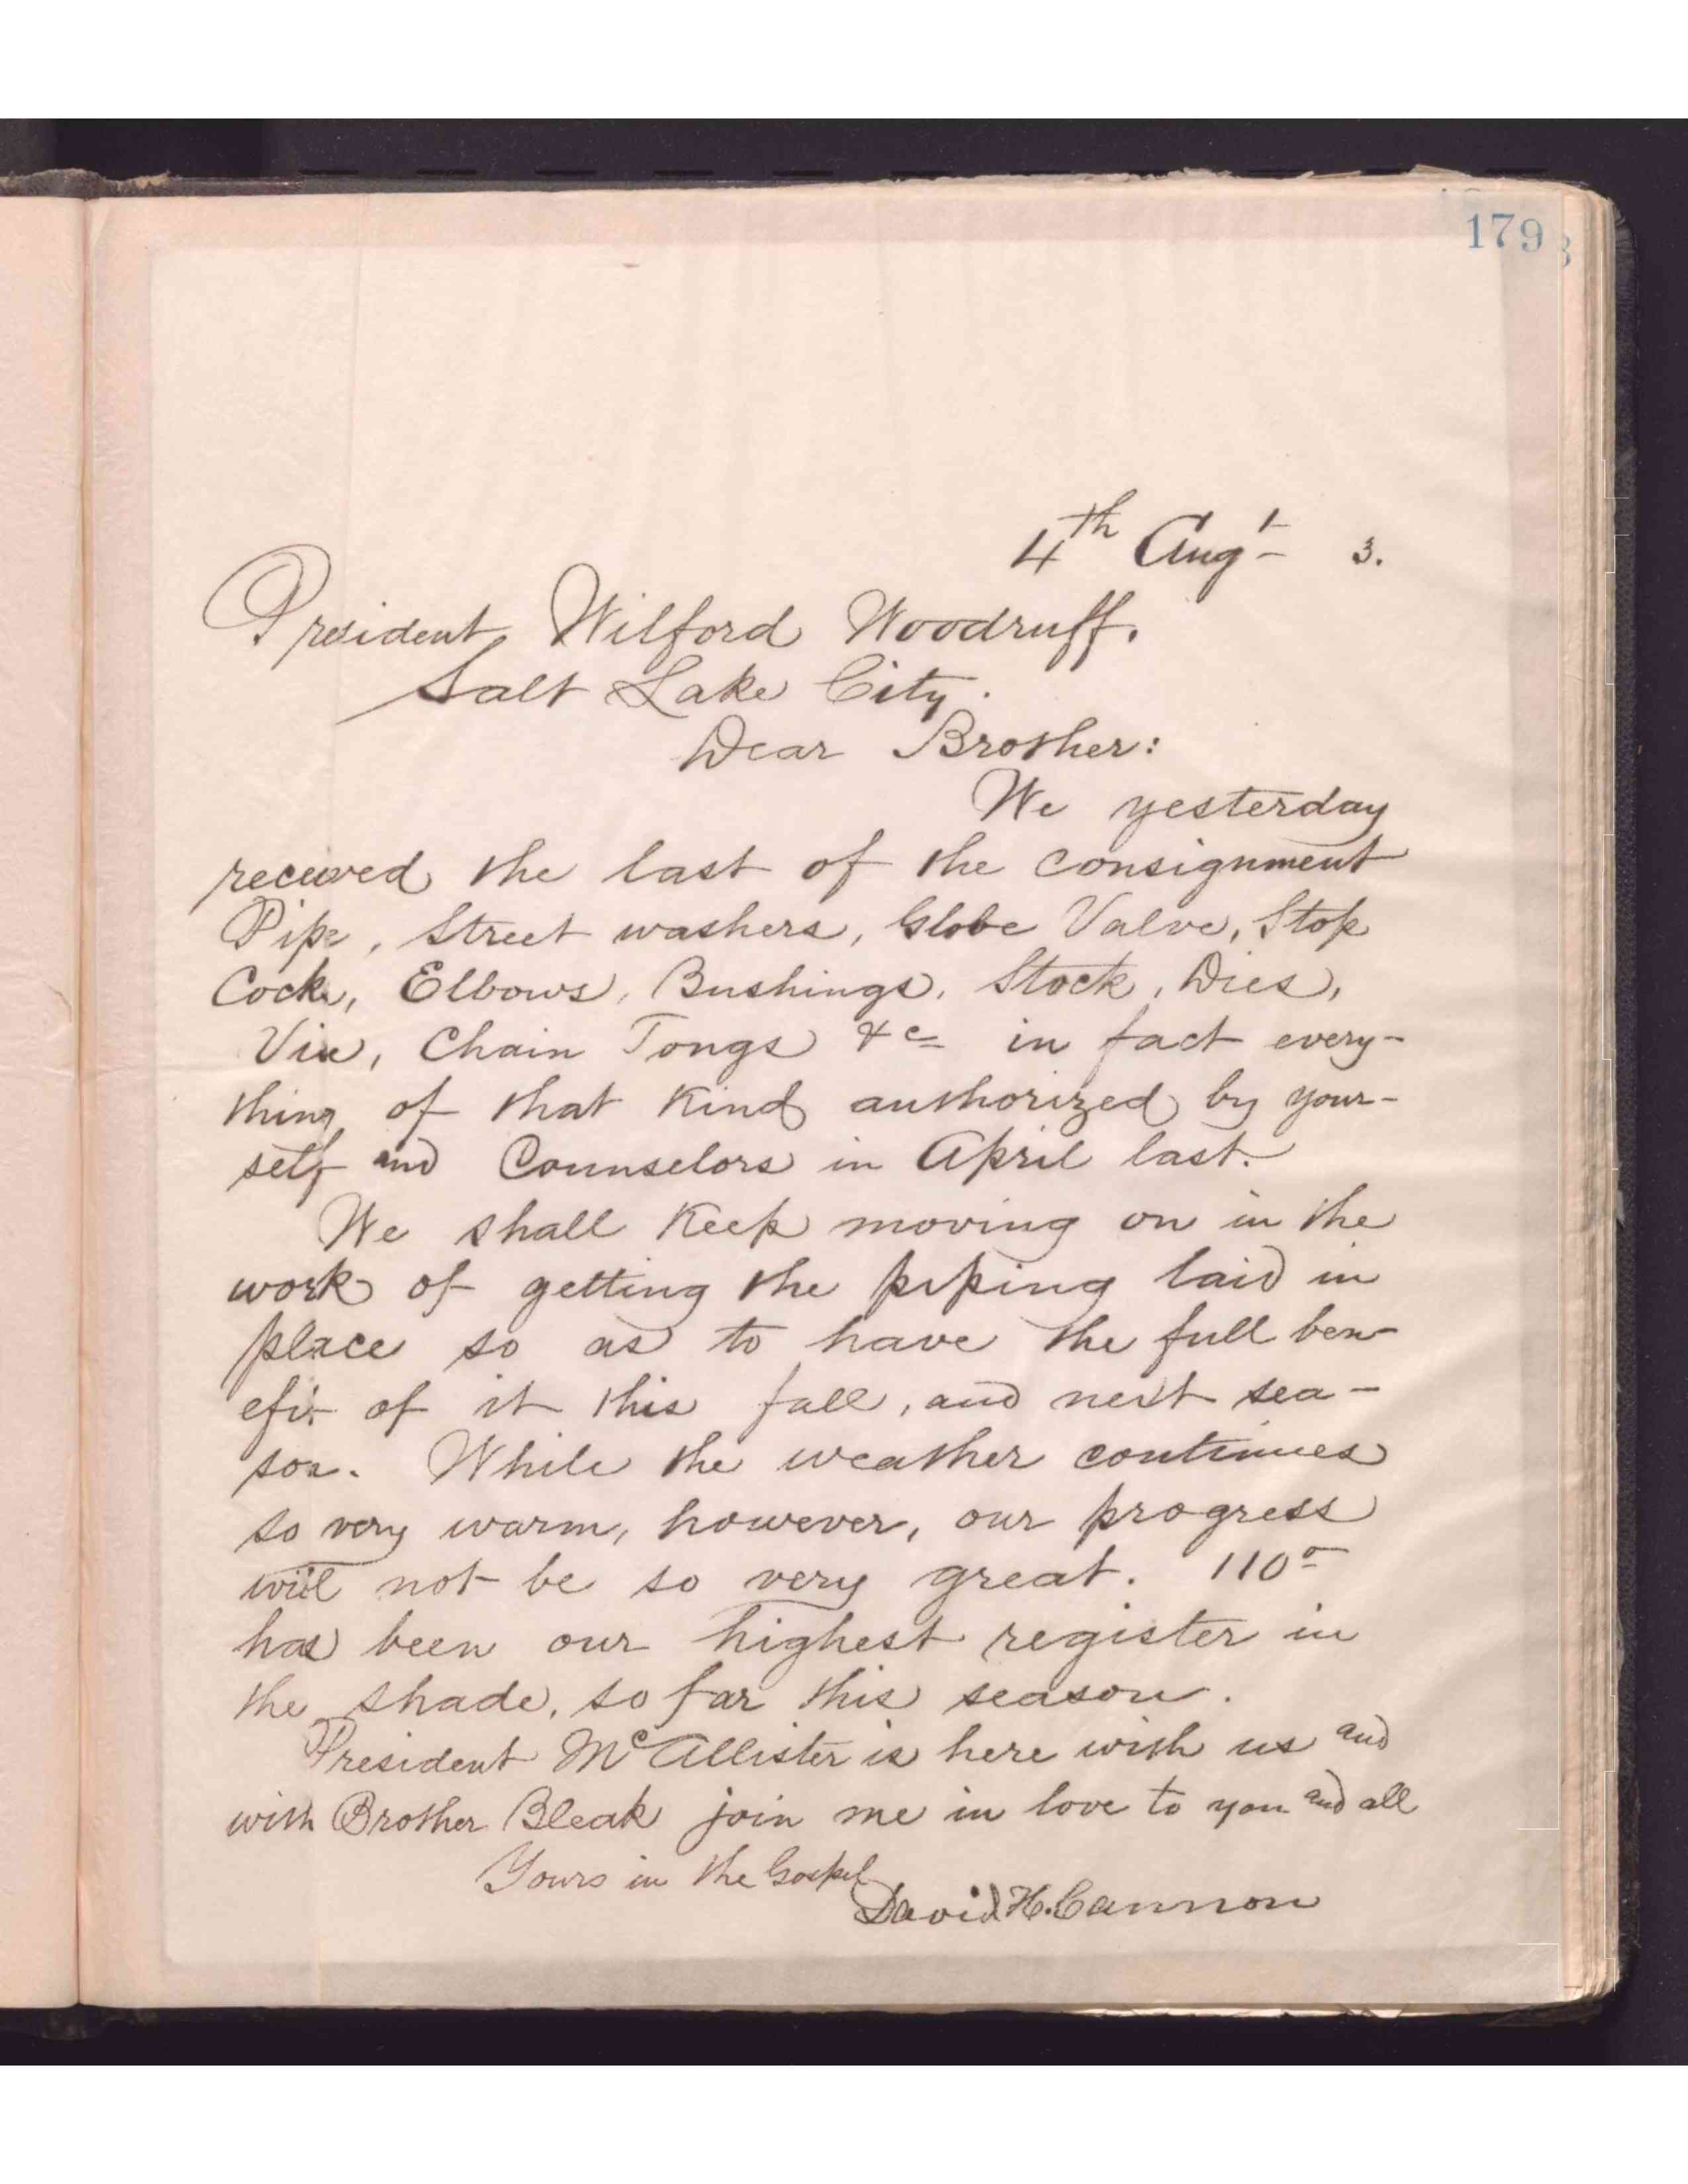 179
4th Augt 3.
President Wilford Woodruff.
Salt Lake City.
Dear Brother:
We yesterday
received the last of the consignment
Pipe, Street washers, Globe Valve, Stop
Cock, Elbows, Bushings, Stock, Dies,
Vise, Chain Tongs &c in fact every-
thing of that kind authorized by your-
self and Counselors in April last.
We shall keep moving on in the
work of getting the piping laid in
place so as to have the full ben-
efit of it this fall, and next sea-
son. While the weather continues
so very warm, however, our progress
will not be so very great. 110°
has been our highest register in
the shade, so far this season.
President McAllister is here with us and
with Brother Bleak join me in love to you and all
Yours in the Gospel
David H. Cannon